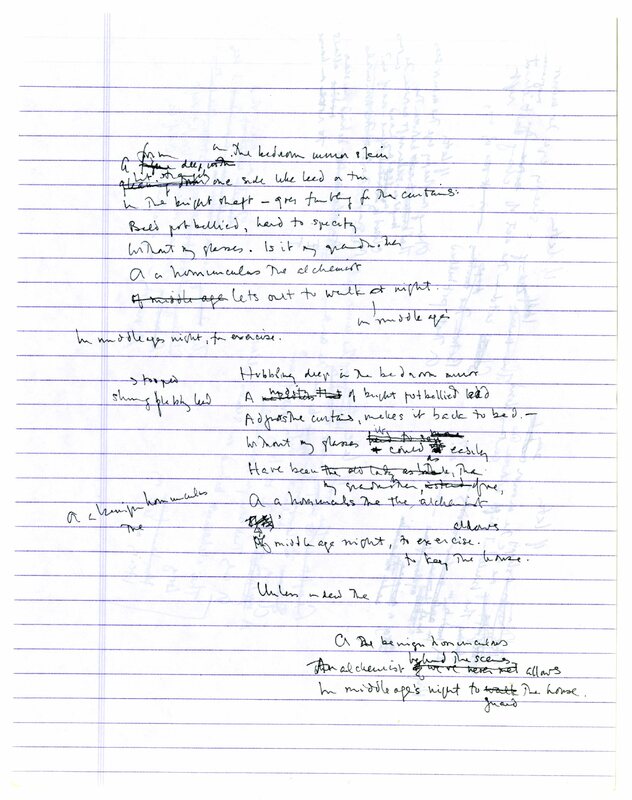 form in the bedroom mirror skin
A figure deep within
lit strangely
gleaming down one side like lead or tin
in the bright shaft – goes fumbling for the curtains:
Bald potbellied, hard to specify
Without my glasses. Is it my grandmother
Or a homunculus the alchemist
of middle age lets out to walk at night.
in middle age
In middle ages night, for exercise.
Hobbling deep in the bedroom mirror
stooped
shining lead
A of bright potbellied lead
Adjusts the curtains, makes it back to bed. –
Without my glasses it could easily
Have been the old lady as the
my grandmother,
Or a homunculus the alchemist
Or a benign homunculus
the
allows
Of middle age night, to exercise.
to keep the house.
Unless indeed the
Or the benign homunculus
behind the scenes
An alchemist we've never met allows
In middle age's night to walk the house.
guard